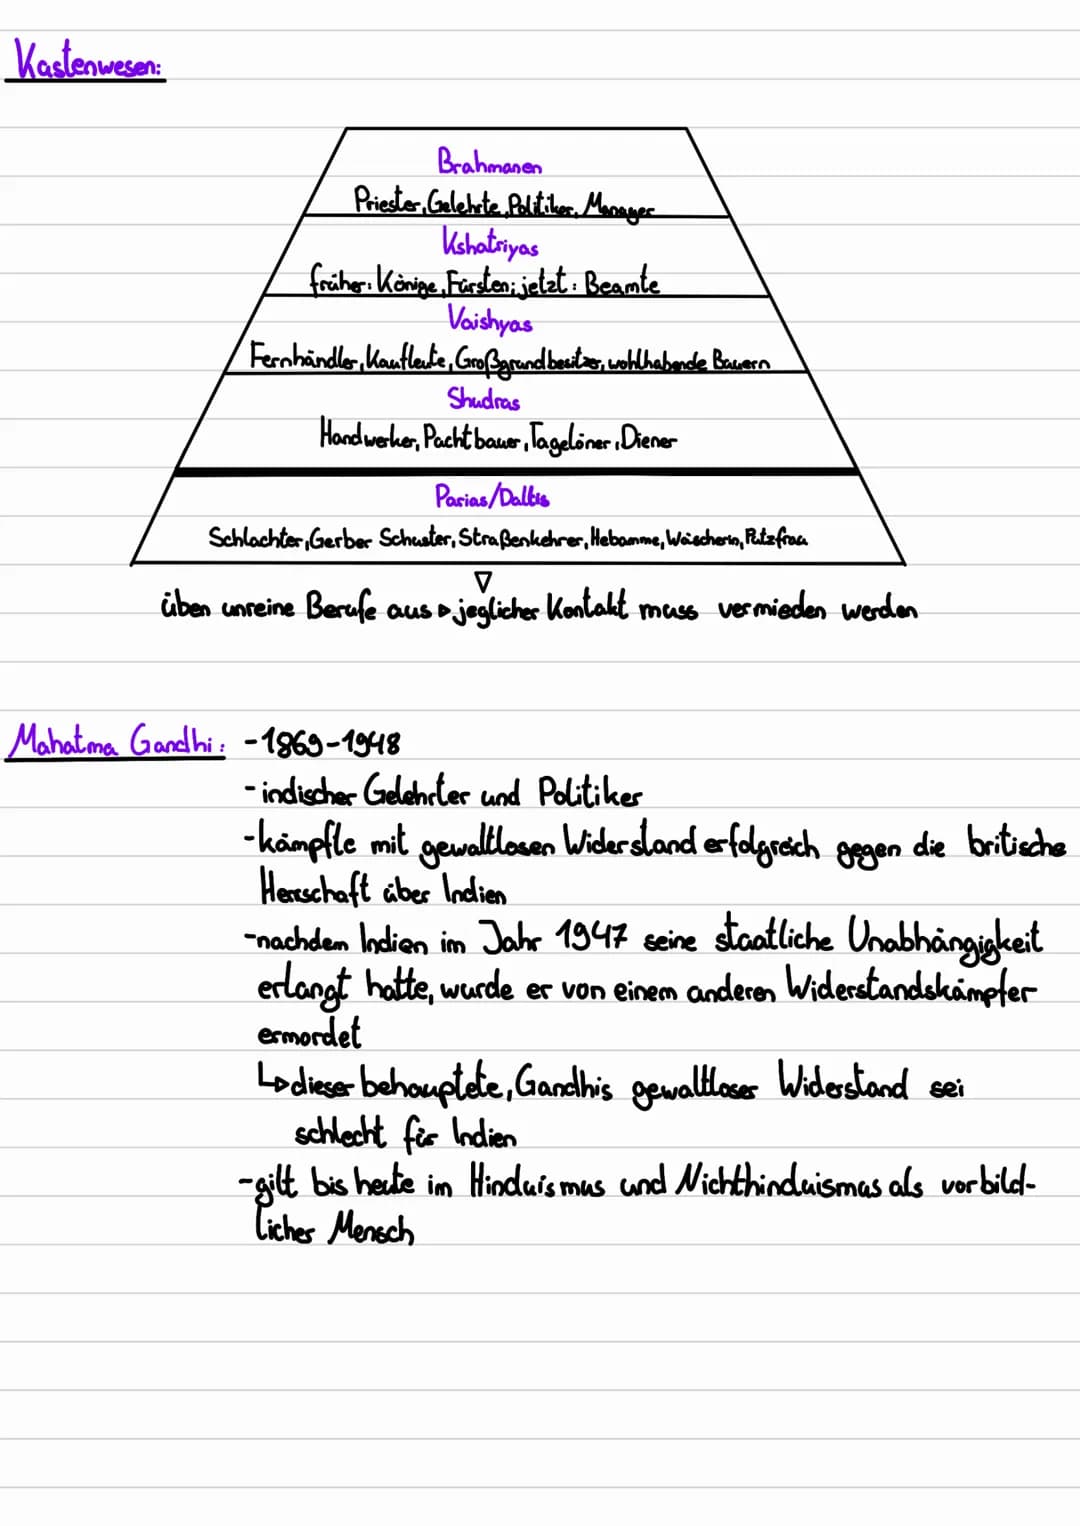 Kastenwesen:
Brahmanen
Priester, Gelehrte, Politiker, Manager
Kshatriyas
früher: Könige, Fürsten; jetzt: Beamte
Vaishyas
Fernhändler, Kaufleute, Großgrundbesitzer, wohlhabende Bauern
Shudras
Handwerker, Pachtbauer, Tagelöner, Diener
Parias/Daltis
Schlachter, Gerber Schuster, Straßenkehrer, Hebamme, Wäscherin, Putzfrau
üben unreine Berufe aus ▹ jeglicher Kontakt muss vermieden werden
Mahatma Gandhi: -1869-1948
- indischer Gelehrter und Politiker
- kämpfte mit gewaltlosen Widerstand erfolgreich gegen die britische
Herrschaft über Indien
- nachdem Indien im Jahr 1947 seine staatliche Unabhängigkeit
erlangt hatte, wurde er von einem anderen Widerstandskämpfer
ermordet
↳ dieser behauptete, Gandhis gewaltloser Widerstand sei
schlecht für Indien
- gilt bis heute im Hinduismus und Nichthinduismus als vorbild-
licher Mensch